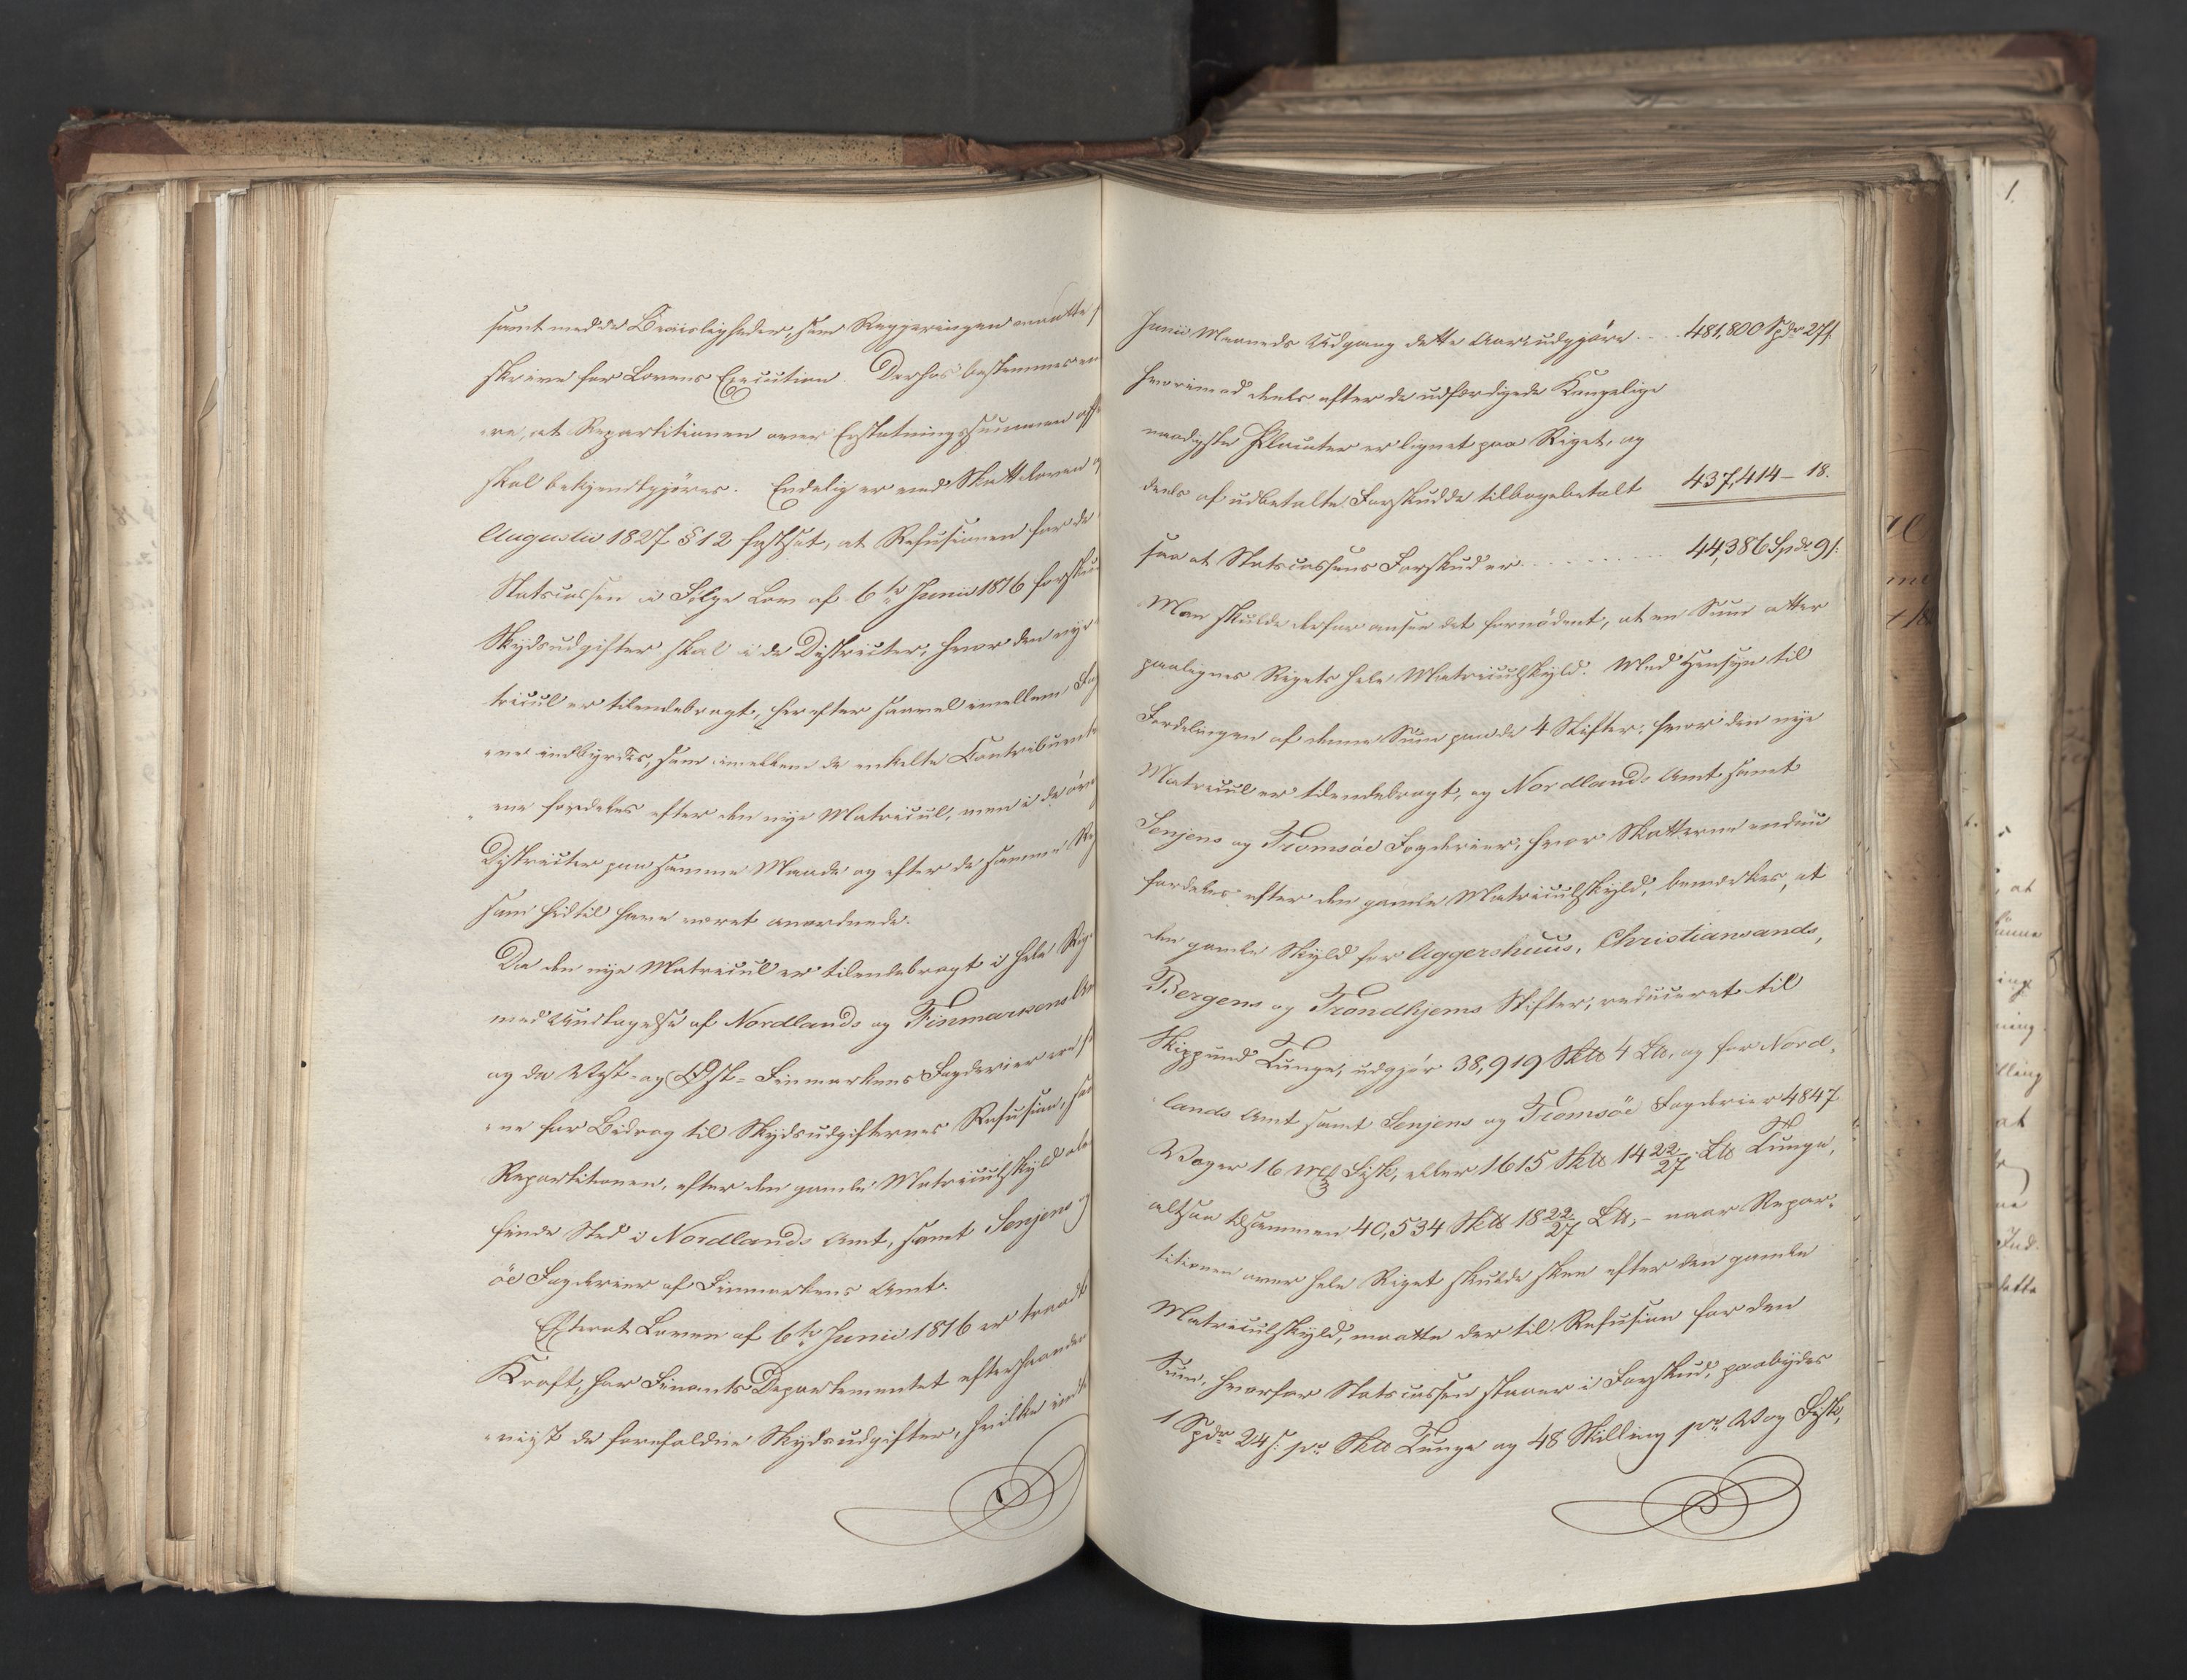 samt med de Beviisligheder, som Regjeringen maatte
skrive for Lovens Execution. Derhos bestemmes
re, at Repartitionen over Erstatningssummen
skal bekjendtgjøres. Endelig er ved Skatteloven
Augustii 1827 § 12 fastsat, at Refusionen for de
Statscassen i Følge Lov af 6te Junii 1816
Skydsudgifter skal i de Districter, hvor den nye
tricul er tilendebragt, herefter saavel imellem
ene indbyrdes, som imellem de enkelte
ene fordeles efter den nye Matricul, men i de
Districter paa samme Maade og efter de samme
som hidtil have været anordnede.
Da den nye Matricul er tilendebragt i hele
med Undtagelse af Nordlands og Finmarkens
og da Vest- og Øst-Finmarkens Fogderier ere
ne for Bidrag til Skydsudgifternes Refusion,
Repartitionen, efter den gamle Matriculskyld
finde Sted i Nordlands Amt, samt Senjens
öe Fogderier af Finmarkens Amt.
Efterat Loven af 6te Junii 1816 er traadt
Kraft, har Finants Departementet efterhaanden
viist de forefaldne Skydsudgifter, hvilke
Junii Maaneds Udgang dette Aar udgjøre .... 481,800 Spdr 27 s.
hvorimod deels efter de udfærdigede Kongelige
naadigste Placater er lignet paa Riget, og
deels af udbetalte Forskudde tilbagebetalt 437,414 – 18.
saa at Statscassens Forskud er ........ 44,386 Spdr. 9 s:
Man skulde derfor ansee det fornødent, at en Sum atter
paalignes Rigets hele Matriculskyld. Med Hensyn til
Fordelingen af denne Sum paa de 4 Stifter, hvor den nye
Matricul er tilendebragt, og Nordlands Amt samt
Senjens og Tromsöe Fogderier, hvor Skatterne endnu
fordeles efter den gamle Matriculskyld, bemærkes, at
den gamle Skyld for Aggershuus, Christiansands,
Bergens og Trondhjems Stifter, reduceret til
Skippund Tunge, udgjør 38,919 Sk℔ 4 L℔, og for Nord,
lands Amt samt Senjens og Tromsöe Fogderier 4847
Voger 16 Mk Fisk, eller 1615 Sk℔ 14 22/27 L℔ Tunge,
altsaa tilsammen 40,534 Sk℔ 18 22/27 L℔, – naar Repar,
titionen over hele Riget skulde skee efter den gamle
Matriculskyld, maatte der til Refusion for den
Sum, hvorfor Statscassen staaer i Forskud, paabydes
1 Spdr 24 s: pr Sk℔ Tunge og 48 Skilling pr Vog Fisk,